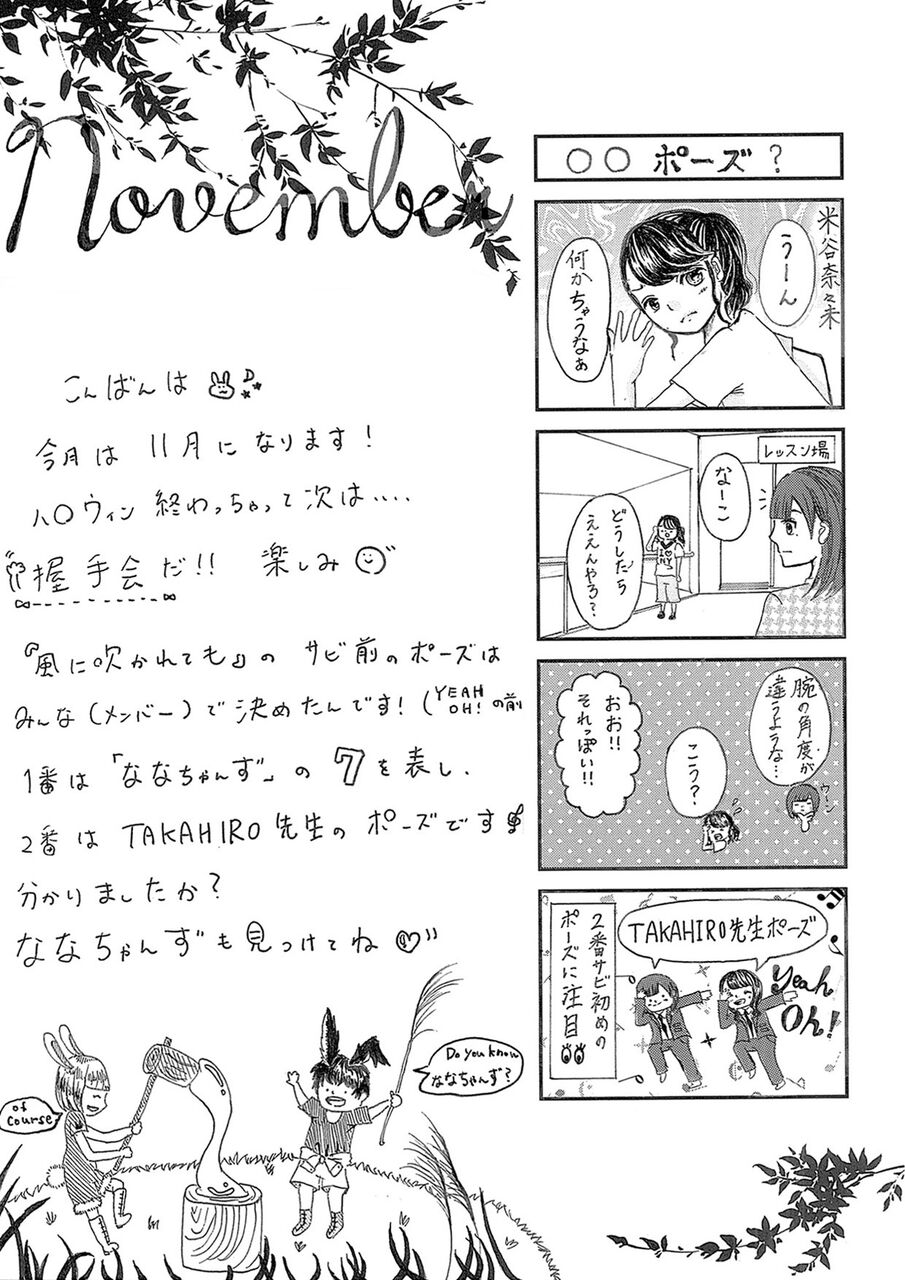 November
こんばんは
今月は11月になります！
ハロウィン終わっちゃって次は‥‥
握手会だ!! 楽しみ
『風に吹かれても』のサビ前のポーズは
みんな(メンバー)で決めたんです！(YEAH OH!の前
1番は「ななちゃんず」の7を表し、
2番はTAKAHIRO先生のポーズです
分かりましたか？
ななちゃんずも見つけてね
of course
Do you know
ななちゃんず？
〇〇ポーズ？
米谷奈々未
うーん
何かちゃうなぁ
レッスン場
なーこ
どうしたら
ええんやろ？
I ♥ NY
腕の角度が
違うような…
ウーン
こう？
おお!!
それっぽい!!
TAKAHIRO先生ポーズ
Yeah
Oh!
2番サビ初めの
ポーズに注目